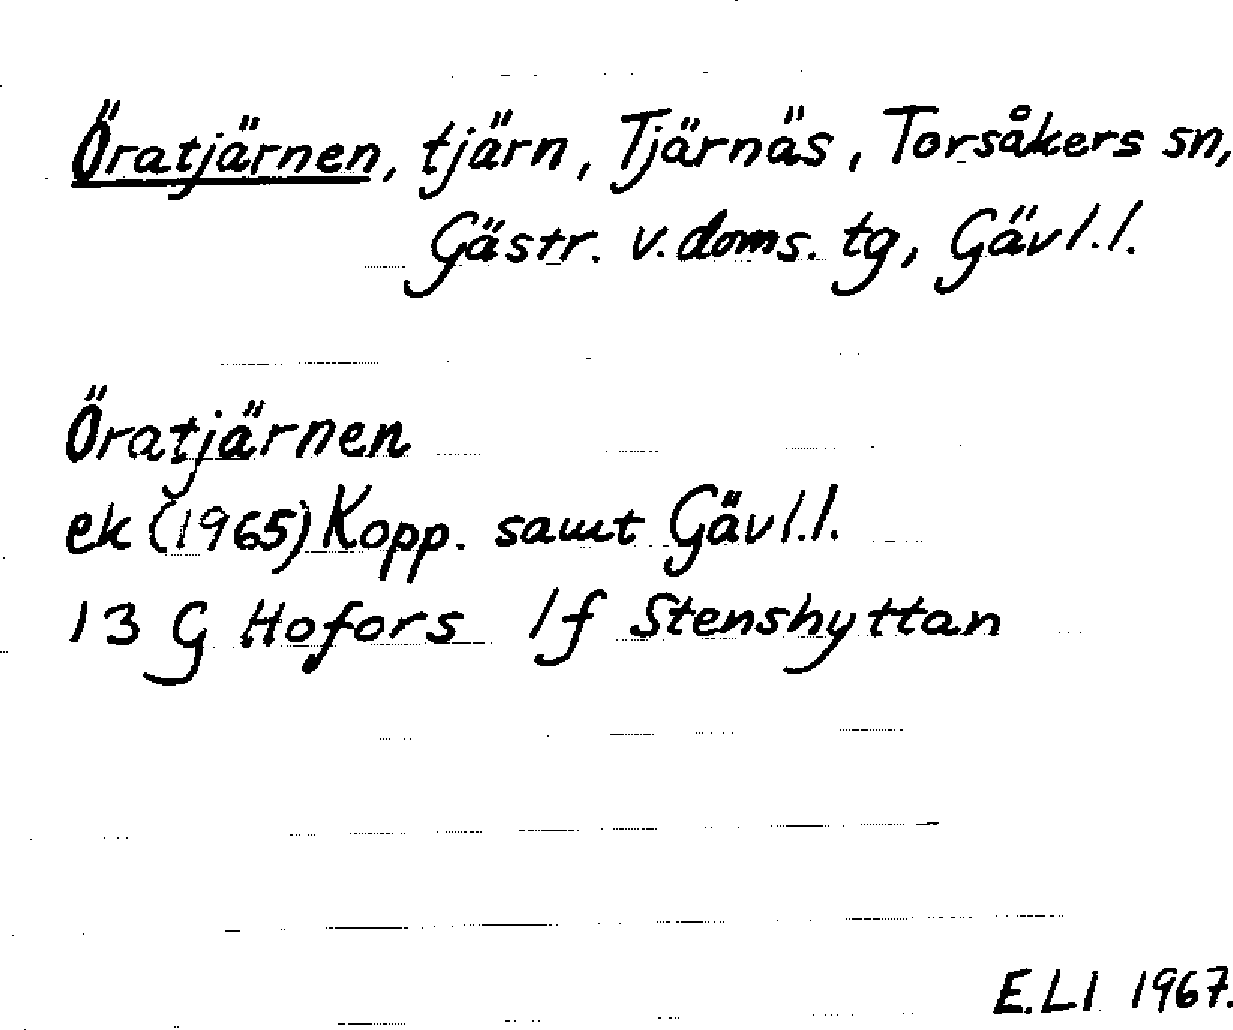 Öratjärnen, tjärn, Tjärnäs, Torsåkers sn,
Gästr. v. doms. tg, Gävl.l.
Öratjärnen
ek (1965) Kopp. samt Gävl.l.
13 G Hofors 1f Stenshyttan
E.LI 1967.